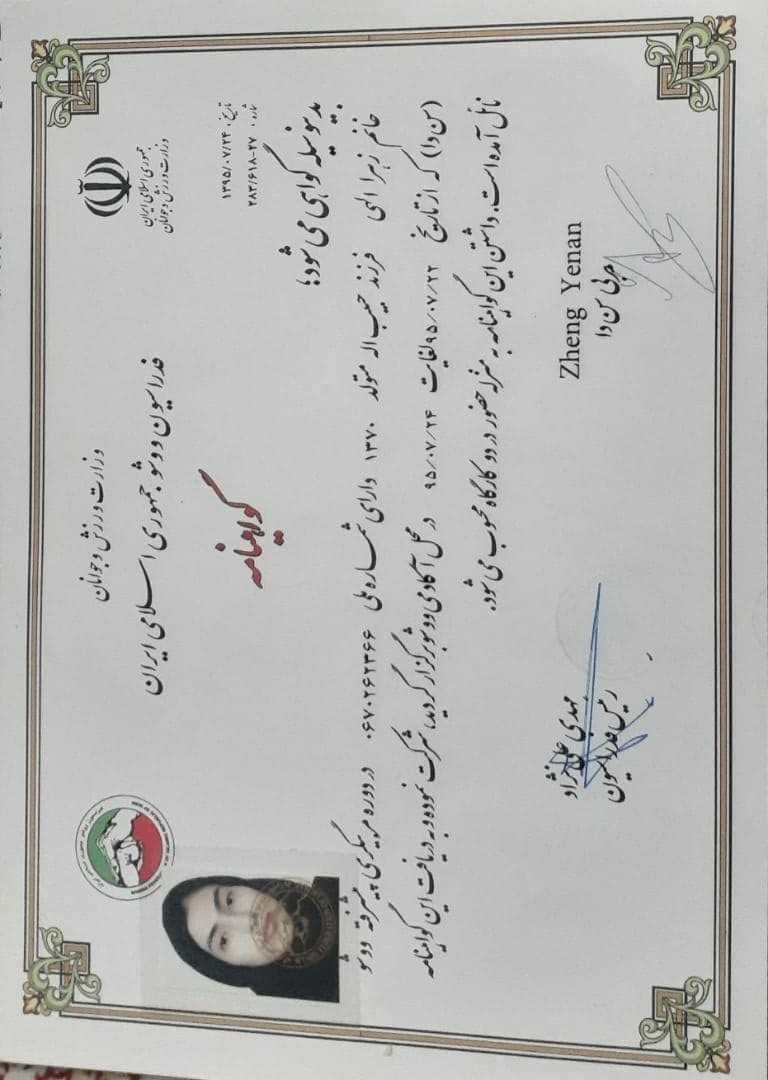 جمهوری اسلامی ایران
وزارت ورزش و جوانان
وزارت ورزش و جوانان
فدراسیون ووشو جمهوری اسلامی ایران
تاریخ: ۱۳۹۵/۰۷/۲۴
شماره: ۲۸۳/۶۱۸-۲۷
گواهینامه
بدینوسیله گواهی می شود؛
خانم زهرا الهی فرزند حبیب اله متولد ۱۳۷۰ دارای شماره ملی ۰۶۷۰۲۶۲۳۶۶ در دوره مربیگری پیشرفته ووشو
(سن دا) که از تاریخ ۹۵/۰۷/۲۲ لغایت ۹۵/۰۷/۲۴ در محل آکادمی ووشو برگزار گردید، شرکت نموده و به دریافت این گواهینامه
نائل آمده است. داشتن این گواهینامه به منزله حضور در دو کارگاه محسوب می شود.
Zheng Yenan
مربی سن دا
مهدی علی نژاد
رئیس فدراسیون